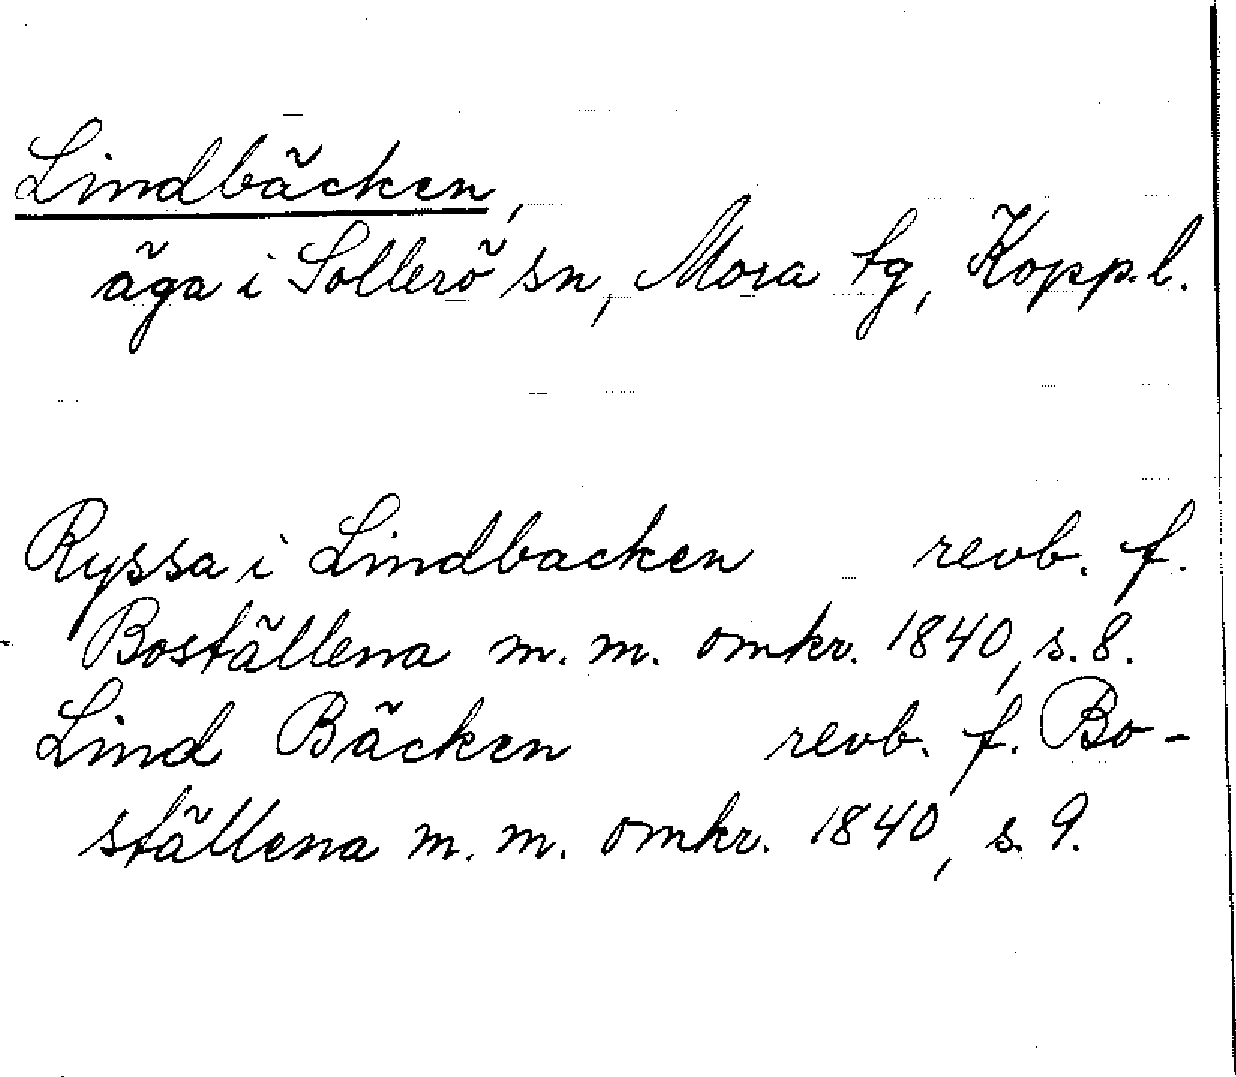 Lindbäcken,
äga i Sollerö sn, Mora tg, Kopp.l.
Ryssa i Lindbacken revb. f.
Boställena m. m. omkr. 1840, s. 8.
Lind Bäcken revb. f. Bo-
ställena m. m. omkr. 1840, s. 9.